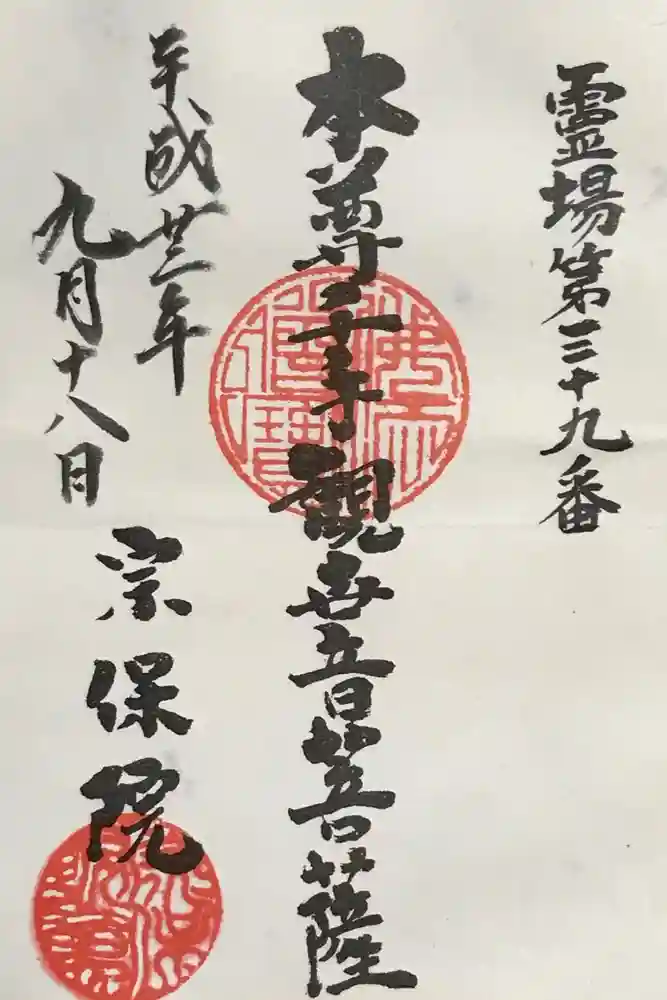 霊場第三十九番
本尊千手觀世音菩薩
平成廿三年
九月十八日
宗保院